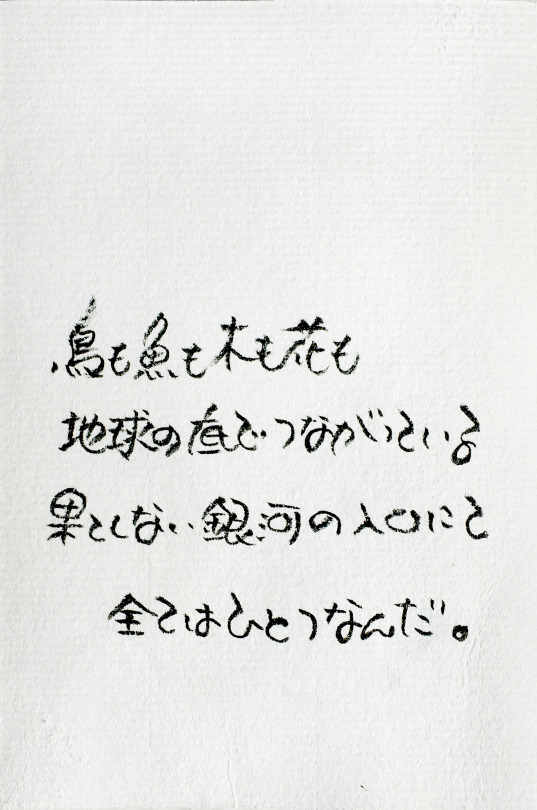 鳥も魚も木も花も
地球の底でつながっている
果てしない銀河の入口にて
全てはひとつなんだ。